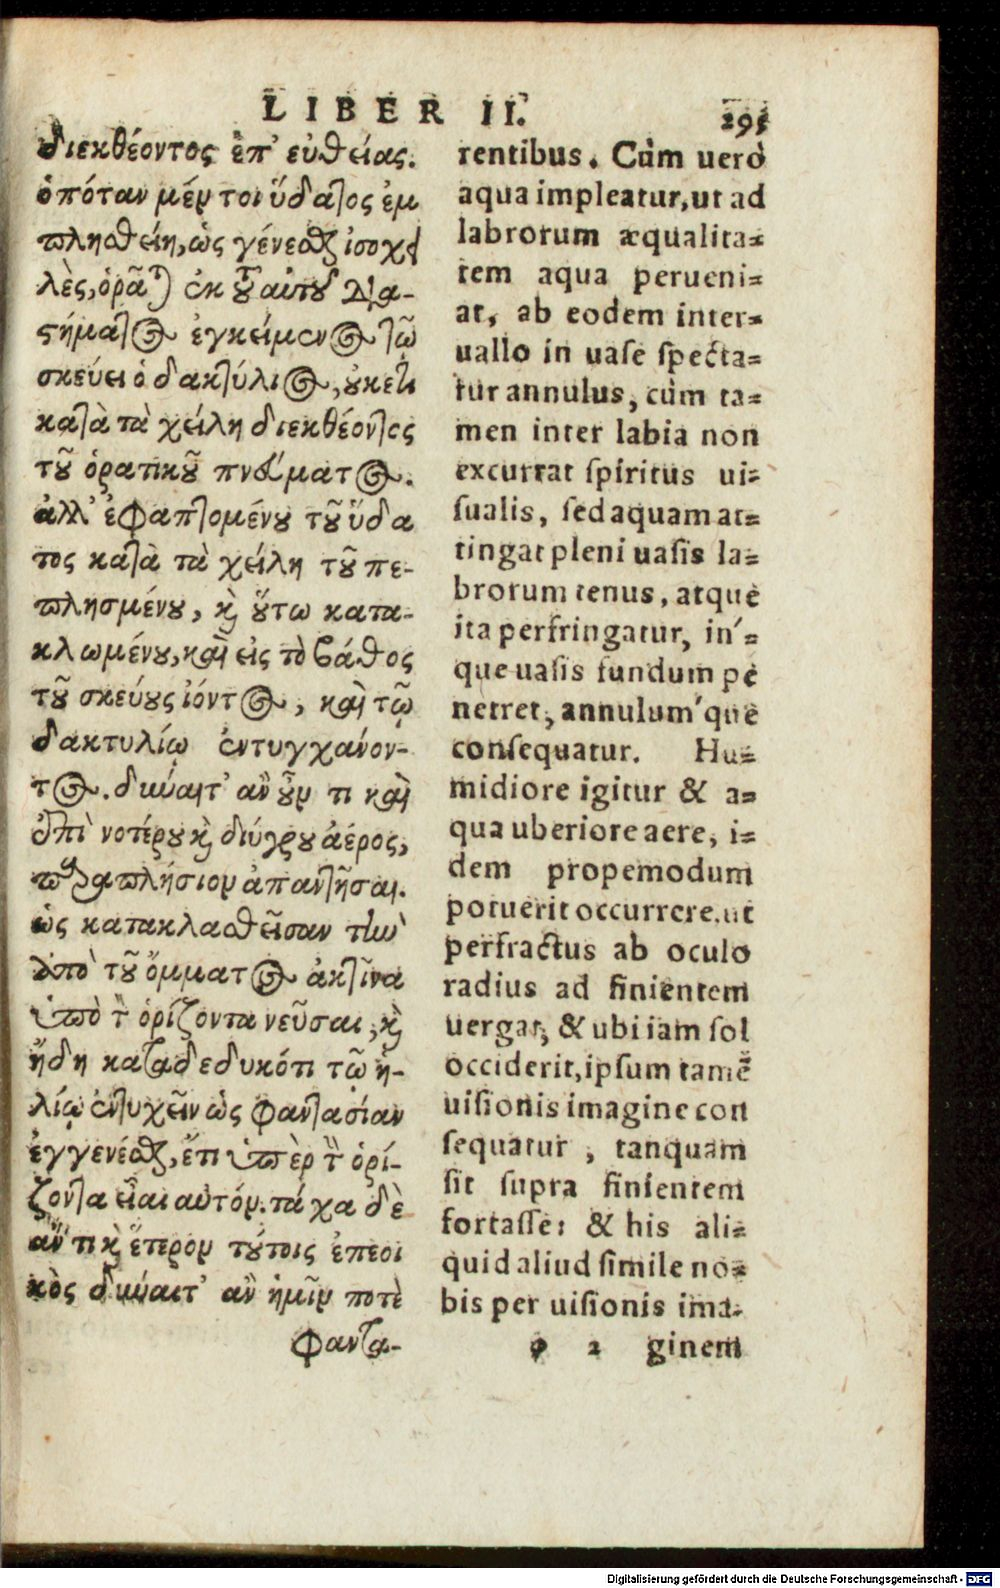 LIBER II. 295
διεκθέοντος ἐπ' εὐθείας.
ὁπόταν μέν τοι ὕδατος ἐμ
πλησθείη, ὡς γένεσθαι ἰσοχει
λὲς, ὁρᾶται ἐκ τοῦ αὐτοῦ δια-
στήματος ἐγκείμενος τῷ
σκεύει ὁ δακτύλιος, οὐκέτι
κατὰ τὰ χείλη διεκθέοντος
τοῦ ὁρατικοῦ πνεύματος.
ἀλλ' ἐφαπτομένου τοῦ ὕδα
τος κατὰ τὰ χείλη τοῦ πε-
πλησμένου, καὶ οὕτω κατα-
κλωμένου, καὶ εἰς τὸ βάθος
τοῦ σκεύους ἰόντος, καὶ τῷ
δακτυλίῳ ἐντυγχάνον-
τος. δύναιτ' ἂν οὖν τι καὶ
ἐπὶ νοτέρου καὶ διύγρου ἀέρος,
παραπλήσιον ἀπαντῆσαι.
ὡς κατακλασθεῖσαν τὴν
ἀπὸ τοῦ ὄμματος ἀκτῖνα
ὑπὸ τὸν ὁρίζοντα νεῦσαι, καὶ
ἤδη καταδεδυκότι τῷ ἡ-
λίῳ ἐντυχεῖν ὡς φαντασίαν
ἐγγενέσθαι, ἔτι ὑπὲρ τὸν ὁρί-
ζοντα εἶναι αὐτόν. τάχα δὲ
ἄν τι καὶ ἕτερον τούτοις ἐπεοι
κὸς δύναιτ' ἂν ἡμῖν ποτὲ
φαντα-
rentibus. Cùm uerò
aqua impleatur, ut ad
labrorum æqualita=
tem aqua perueni=
at, ab eodem inter=
uallo in uase specta=
tur annulus, cùm ta=
men inter labia non
excurrat spiritus ui=
sualis, sed aquam at=
tingat pleni uasis la=
brorum tenus, atque
ita perfringatur, in'=
que uasis fundum pe
netret, annulum'que
consequatur. Hu=
midiore igitur & a=
qua uberiore aere, i=
dem propemodum
potuerit occurrere, ut
perfractus ab oculo
radius ad finientem
uergat, & ubi iam sol
occiderit, ipsum tamē
uisionis imagine con
sequatur, tanquam
sit supra finientem
fortasse: & his ali=
quid aliud simile no=
bis per uisionis ima=
2 ginem
Digitalisierung gefördert durch die Deutsche Forschungsgemeinschaft - DFG